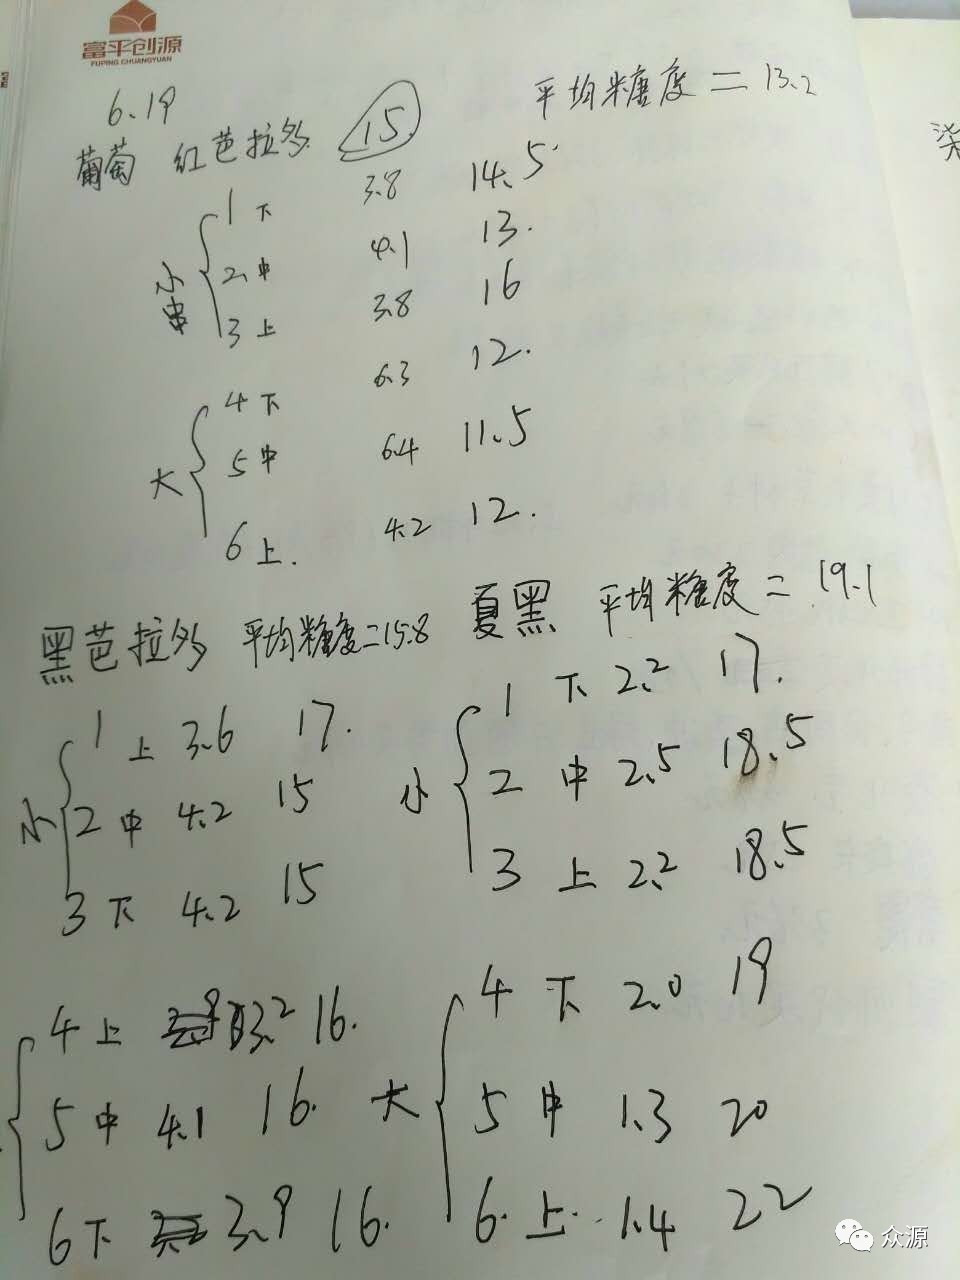 富平创源
FUPING CHUANGYUAN
6.19 平均糖度=13.2
葡萄 红芭拉多 15
小串
1 下 3.8 14.5
2 中 4.1 13.
3 上 3.8 16
大
4 下 6.3 12.
5 中 6.4 11.5
6 上. 4.2 12.
黑芭拉多 平均糖度=15.8
小
1 上 3.6 17.
2 中 4.2 15
3 下 4.2 15
4 上 3.2 16.
5 中 4.1 16.
6 下 3.9 16.
夏黑 平均糖度=19.1
小
1 下 2.2 17.
2 中 2.5 18.5
3 上 2.2 18.5
大
4 下 2.0 19
5 中 1.3 20
6. 上. 1.4 22
众源